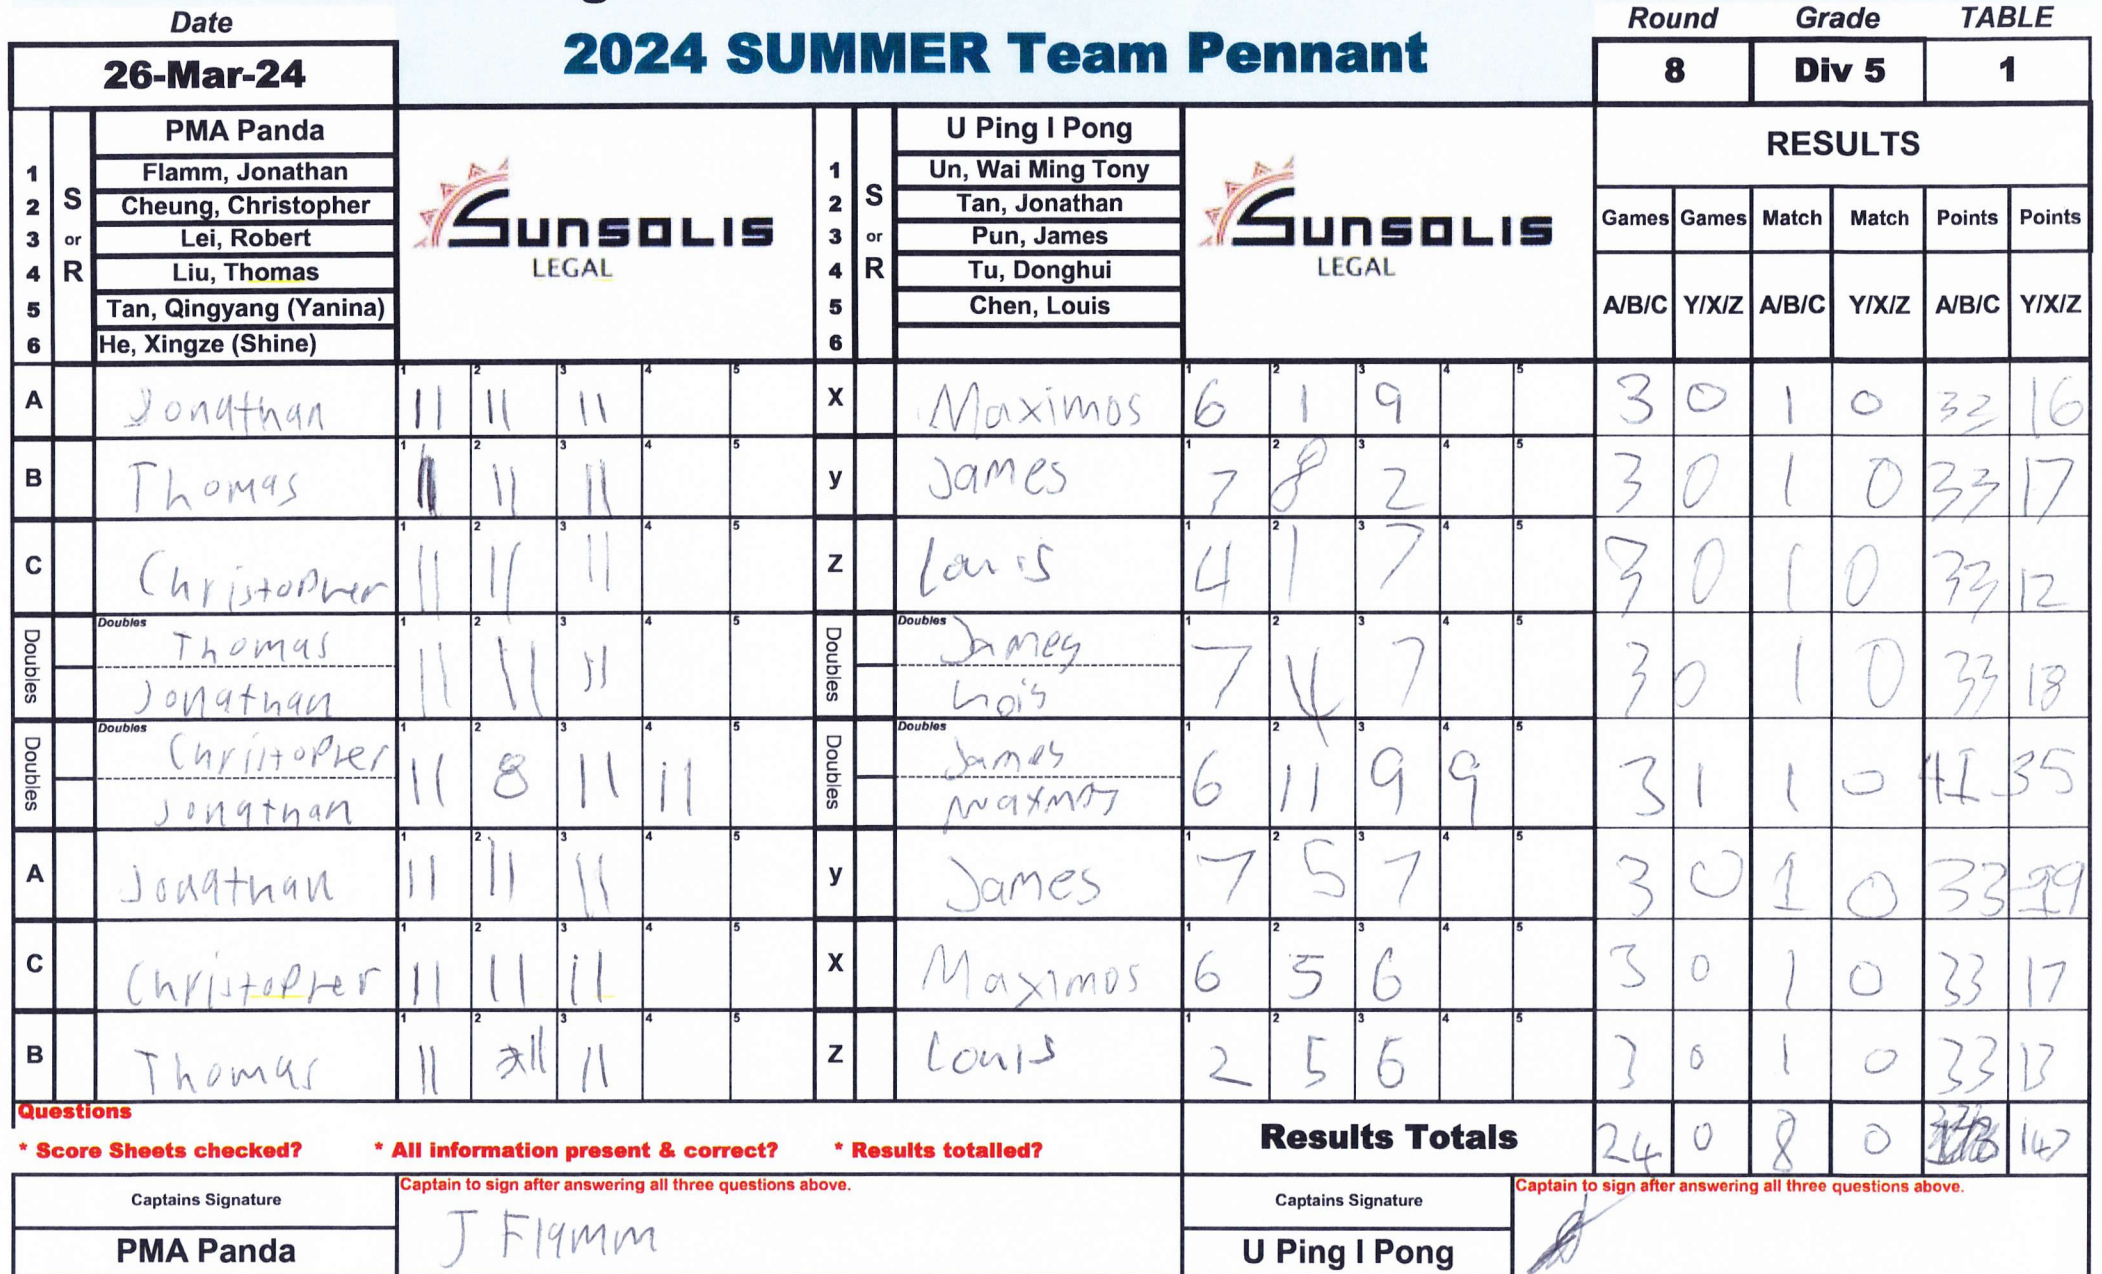 Date
26-Mar-24
2024 SUMMER Team Pennant
Round Grade TABLE
8 Div 5 1
S or R
PMA Panda
1 Flamm, Jonathan
2 Cheung, Christopher
3 Lei, Robert
4 Liu, Thomas
5 Tan, Qingyang (Yanina)
6 He, Xingze (Shine)
SUNSOLIS
LEGAL
S or R
U Ping I Pong
1 Un, Wai Ming Tony
2 Tan, Jonathan
3 Pun, James
4 Tu, Donghui
5 Chen, Louis
6
SUNSOLIS
LEGAL
RESULTS
Games Games Match Match Points Points
A/B/C Y/X/Z A/B/C Y/X/Z A/B/C Y/X/Z
1 2 3 4 5 1 2 3 4 5
A Jonathan 11 11 11 X Maximos 6 1 9 3 0 1 0 32 16
1 2 3 4 5 1 2 3 4 5
B Thomas 11 11 11 y James 7 8 2 3 0 1 0 33 17
1 2 3 4 5 1 2 3 4 5
C Christopher 11 11 11 Z Louis 4 1 7 3 0 1 0 33 12
Doubles 1 2 3 4 5 Doubles 1 2 3 4 5
Doubles Thomas Jonathan 11 11 11 Doubles James Lois 7 4 7 3 0 1 0 33 18
Doubles 1 2 3 4 5 Doubles 1 2 3 4 5
Doubles Christopher Jonathan 11 8 11 11 Doubles James Maxmos 6 11 9 9 3 1 1 0 41 35
1 2 3 4 5 1 2 3 4 5
A Jonathan 11 11 11 y James 7 5 7 3 0 1 0 33 19
1 2 3 4 5 1 2 3 4 5
C Christopher 11 11 11 X Maximos 6 5 6 3 0 1 0 33 17
1 2 3 4 5 1 2 3 4 5
B Thomas 11 11 11 Z Louis 2 5 6 3 0 1 0 33 13
Questions
* Score Sheets checked? * All information present & correct? * Results totalled?
Results Totals 24 0 8 0 147
Captains Signature
PMA Panda
Captain to sign after answering all three questions above.
J Flamm
Captains Signature
U Ping I Pong
Captain to sign after answering all three questions above.